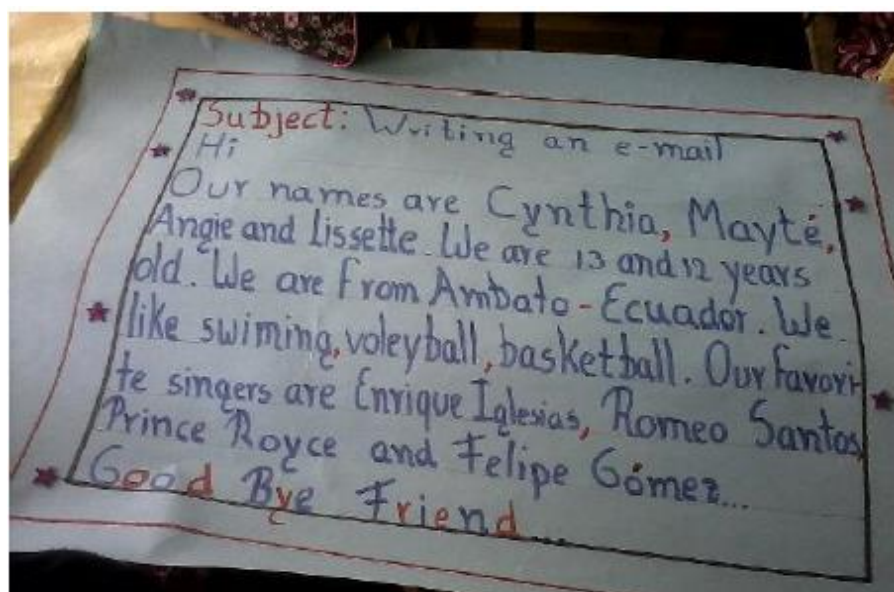 Subject: Writing an e-mail
Hi
Our names are Cynthia, Mayté,
Angie and Lissette. We are 13 and 12 years
old. We are from Ambato - Ecuador. We
like swiming, voleyball, basketball. Our favori-
te singers are Enrique Iglesias, Romeo Santos,
Prince Royce and Felipe Gómez...
Good Bye Friend...